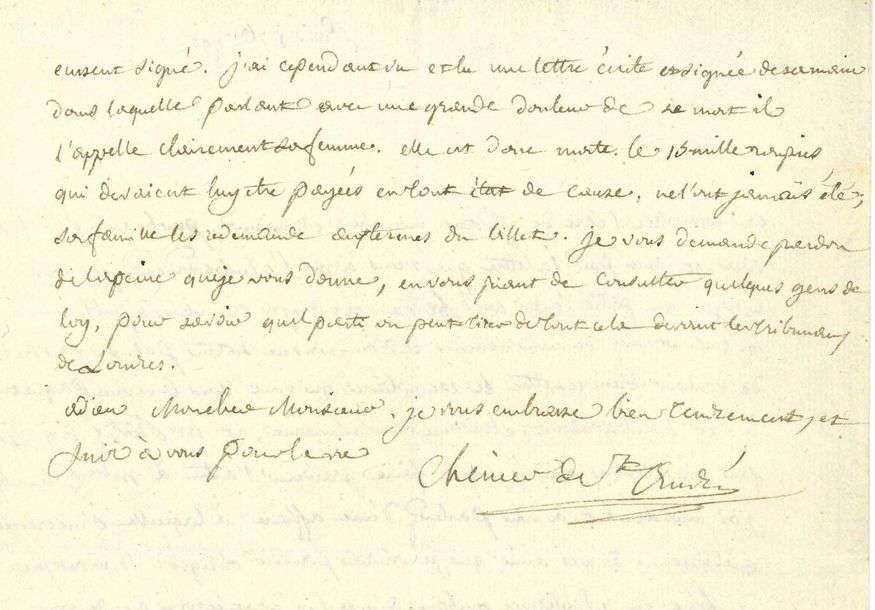 eussent signé. j'ai cependant vu et lu une lettre écrite et signée de sa main
dans laquelle parlant avec une grande douleur de sa mort il
l'appelle clairement sa femme. elle est donc morte. le 15 mille roupies
qui devaient luy être payées en tout état de cause, ne l'ont jamais été;
sa famille les redemande aux termes du billet. je vous demande pardon
de la peine que je vous donne, en vous priant de consulter quelques gens de
loy, pour savoir quel parti on peut tirer de tout cela devant les tribunaux
de Londres.
adieu Mon cher Monsieur, je vous embrasse bien tendrement, et
suis à vous pour la vie
Chénier de St. André